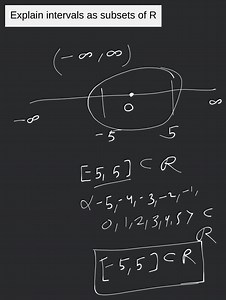 Explain intervals as subsets of R
(-∞, ∞)
-∞ 0 ∞
-5 5
[-5, 5] ⊂ R
-5, -4, -3, -2, -1,
0, 1, 2, 3, 4, 5 > ⊂
R
[-5, 5] ⊂ R